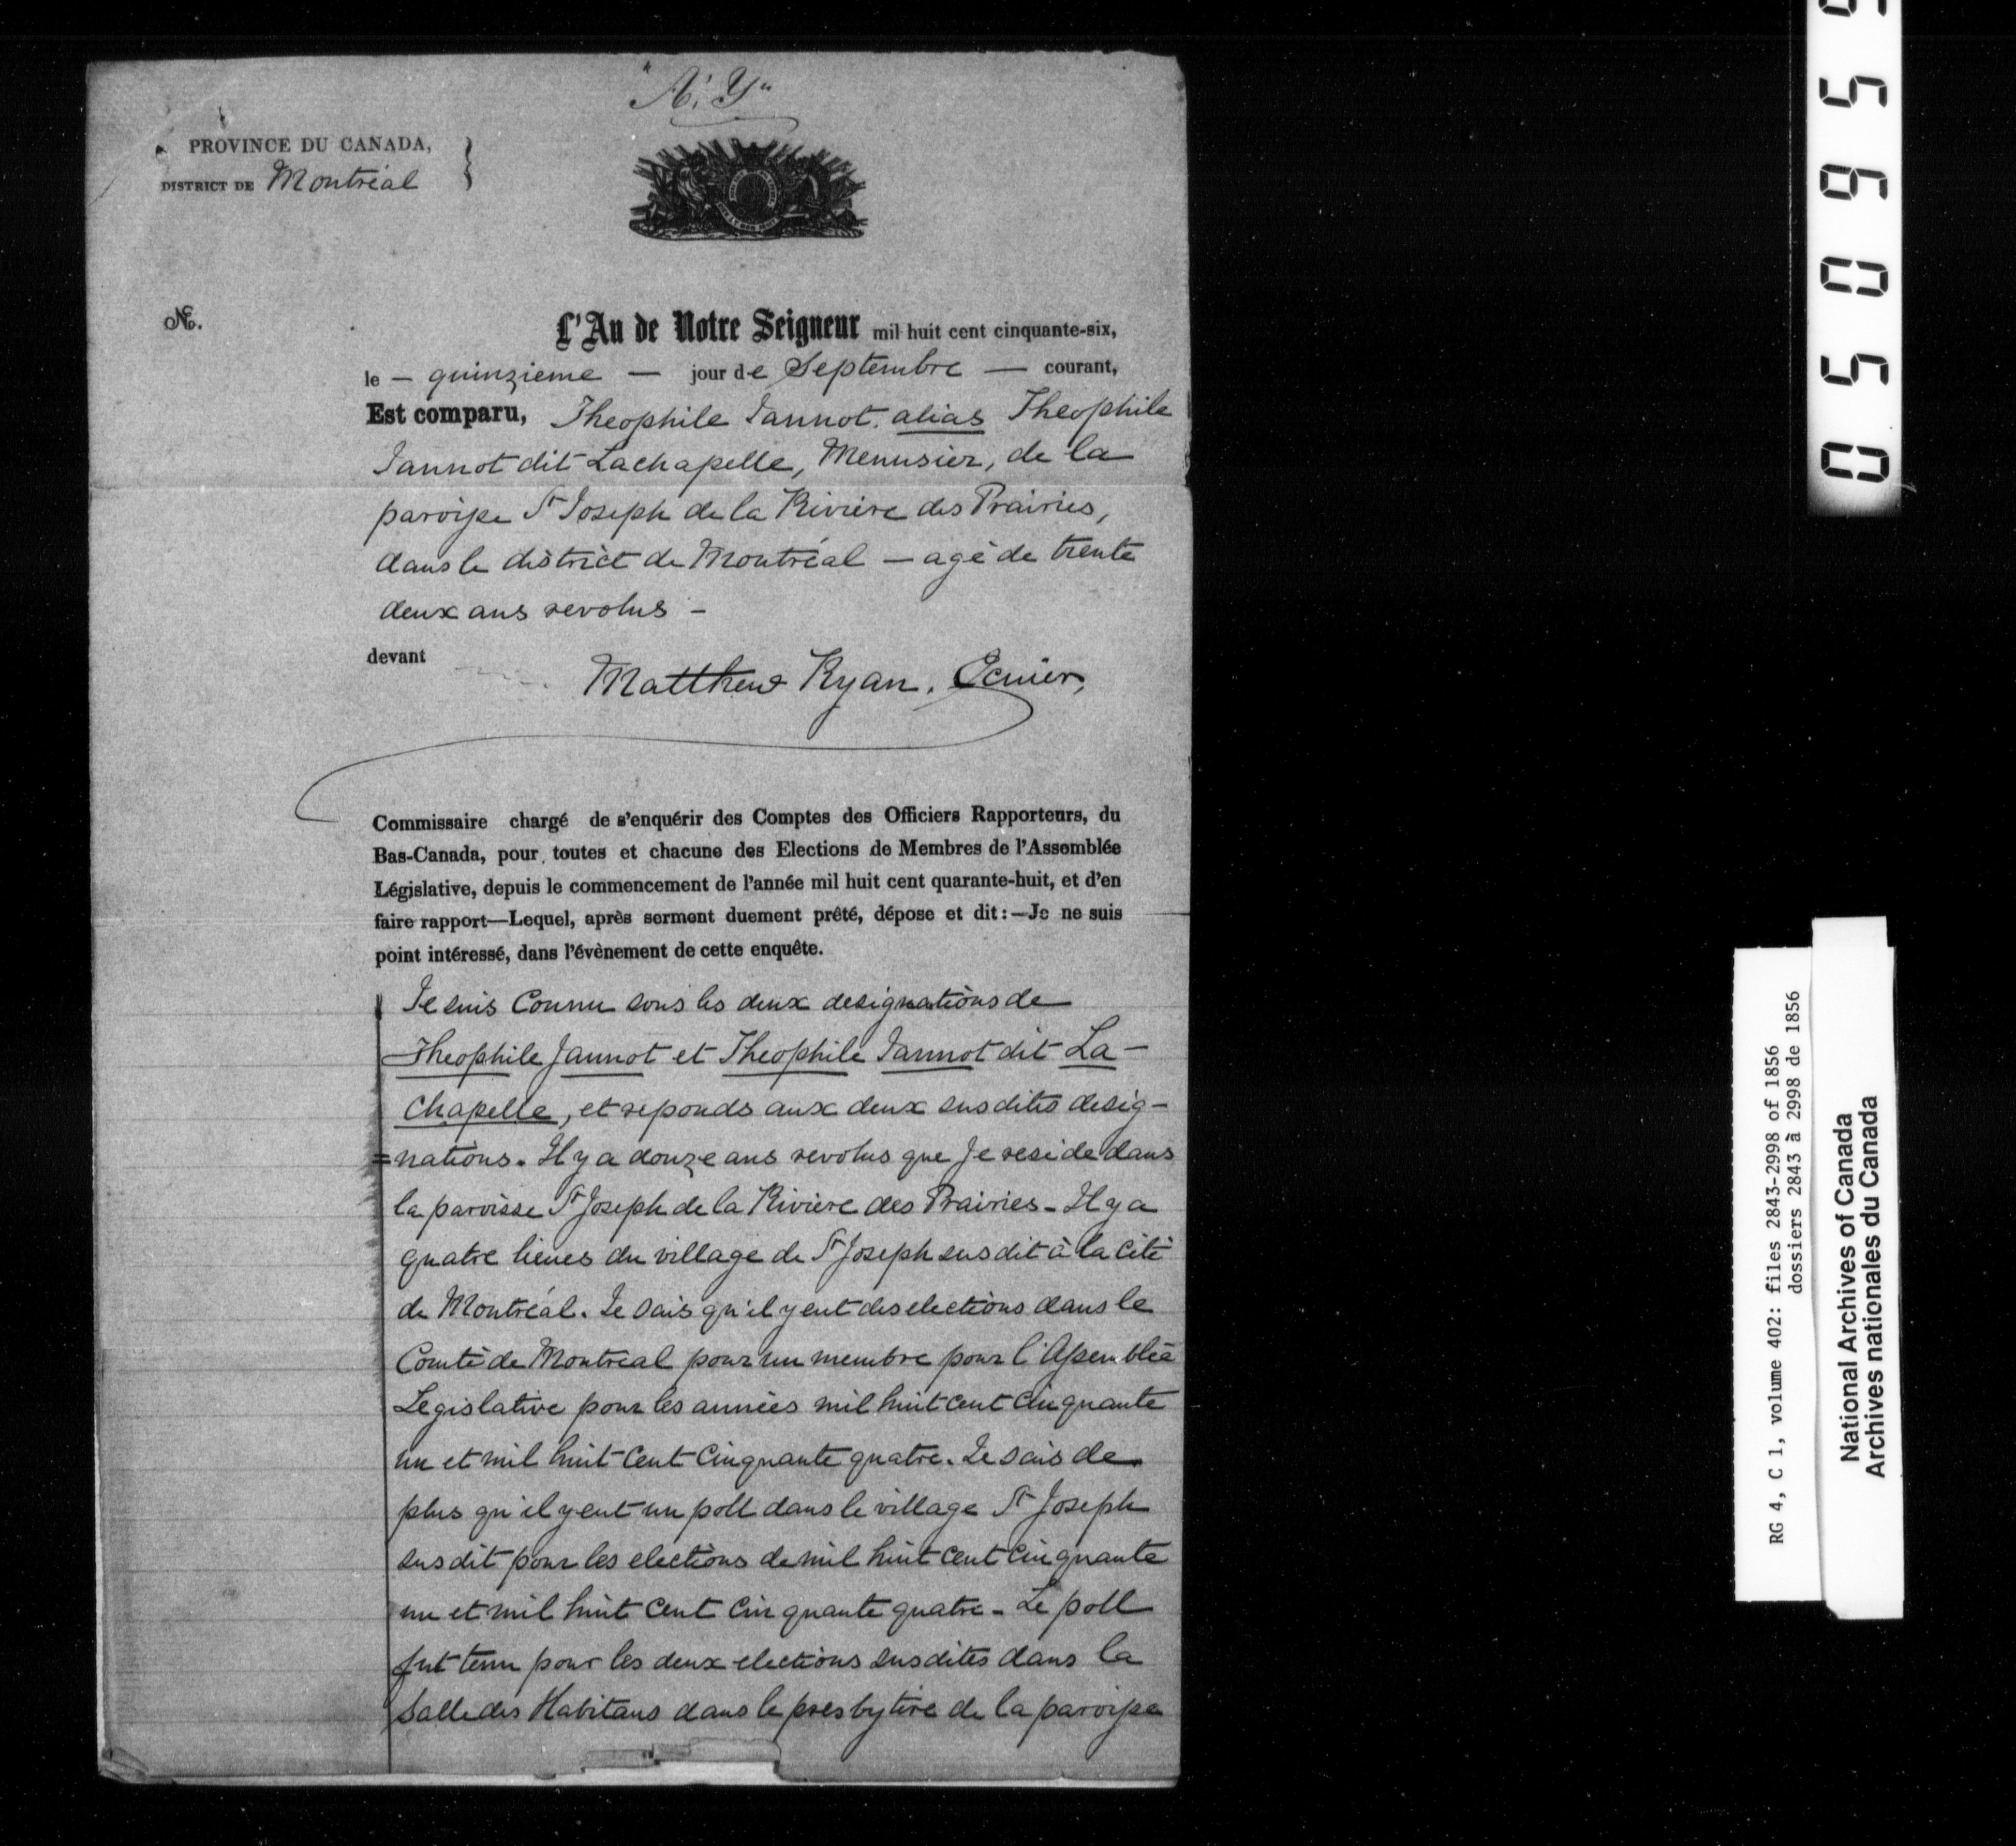 "A. Y"
PROVINCE DU CANADA,
DISTRICT DE Montréal
No.
L'An de Notre Seigneur mil huit cent cinquante-six,
le — quinzieme — jour de Septembre — courant,
Est comparu, Theophile Jannot, alias Theophile
Jannot dit Lachapelle, Menusier, de la
paroisse St Joseph de la Riviere des Prairies,
dans le district de Montréal — agé de trente
deux ans revolus -
devant
Matthew Ryan, Ecuier,
Commissaire chargé de s'enquérir des Comptes des Officiers Rapporteurs, du
Bas-Canada, pour toutes et chacune des Elections de Membres de l'Assemblée
Législative, depuis le commencement de l'année mil huit cent quarante-huit, et d'en
faire rapport—Lequel, après serment duement prêté, dépose et dit:—Je ne suis
point intéressé, dans l'évènement de cette enquête.
Je suis Connu sous les deux designations de
Theophile Jannot et Theophile Jannot dit La-
Chapelle, et reponds aux deux susdites desig-
=nations. Il y a douze ans revolus que Je reside dans
la paroisse St Joseph de la Riviere des Prairies - Il y a
quatre lieues du village de St Joseph susdit à la Cité
de Montréal. Je sais qu'il y eut des elections dans le
Comté de Montreal pour un membre pour l'Assemblée
Legislative pour les années mil huit cent Cinquante
un et mil huit Cent Cinquante quatre. Je sais de
plus qu'il y eut un poll dans le village St Joseph
susdit pour les elections de mil huit cent Cinquante
un et mil huit Cent Cinquante quatre - Le poll
fut tenu pour les deux elections susdites dans la
Salle des Habitans dans le presbytère de la paroisse
050959
RG 4, C 1, volume 402: files 2843-2998 of 1856
dossiers 2843 à 2998 de 1856
National Archives of Canada
Archives nationales du Canada